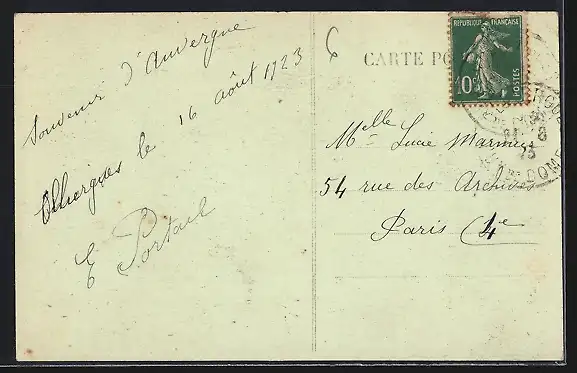 Souvenir d'Auvergne
Olliergues le 16 août 1923
E Portail
6
CARTE PO
RÉPUBLIQUE FRANÇAISE
10c
POSTES
Melle Lucie
54 rue des Archives
Paris (4e
DOME